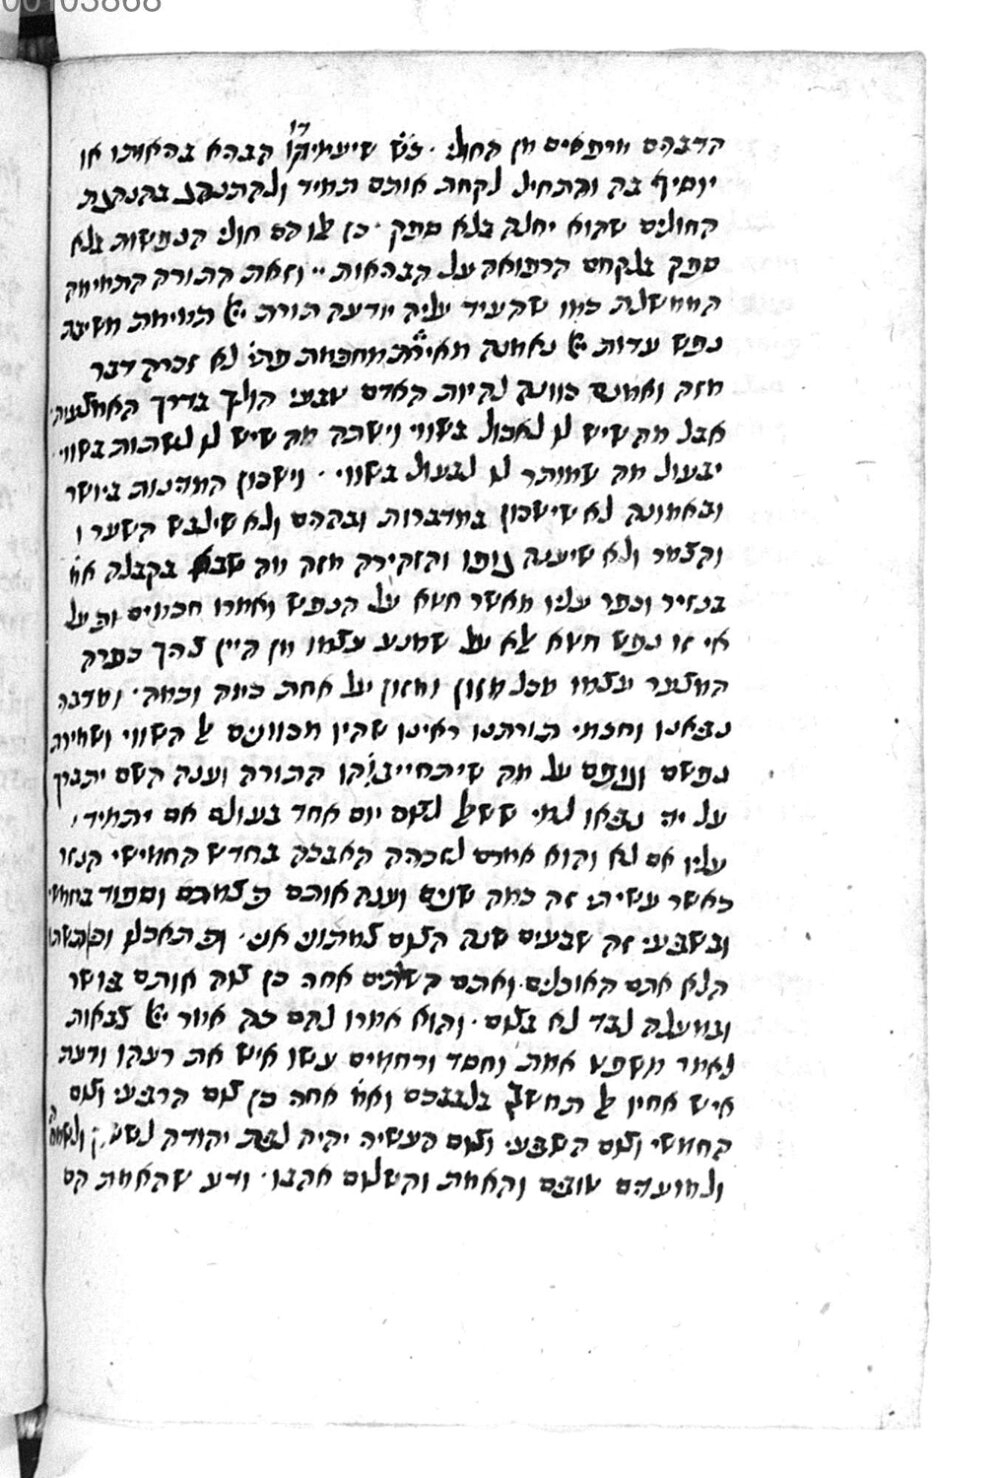 00103868
הדברים מרפאים מן החולי . כש שיעמידו הבריא בריאותו או
יוסיף בה והתחיל לקחת אותם תמיד ולהתנהג בהנהגת
החולים שהוא יחלה בלא ספק . כן אלו הם חולי הנפשות בלא
ספק בלקחם הרפואה על הבריאות .. וזאת התורה התמימה
המשלמת כמו שהעיד עליה יודעה תורת יי תמימת משיבת
נפש עדות יי נאמנה מאירת מחכמת פתי לא זכרה דבר
מזה ואמנם כוונה להיות האדם טבעי הולך בדרך האמצעית
אבל מה שיש לו לאכול בשווי וישתה מה שיש לו לשתות בשווי
יבעול מה שמותר לו לבעול בשווי . וישכון המדינות ביושר
ובאמונה לא שישכון במדברות ובהרים ולא שילבש השער ו
והצמר ולא שיענה גופו והזהירה מזה מה שבא בקבלה אמ
בנזיר וכפר עליו מאשר חטא על הנפש ואמרו חכמים וכי על
אי זו נפש חטא זה לא על שמנע עצמו מן היין
המצער עצמו מכל מזון ומזון על אחת כמה וכמה . ומדברי
נביאנו וחכמי תורתנו ראינו שהיו מכוונים אל השווי ושמירת
נפשם וגופם על מה שיתחייבוהו התורה וענה השם יתברך
על יד נביאו למי ששאל לצום יום אחד בעולם אם יתמיד
עליו אם לא והוא אמרם לזכריה האבכה בחדש החמישי הנזר
כאשר עשיתי זה כמה שנים וענה אותם כי צמתם וספוד בחמישי
ובשביעי זה שבעים שנה הצום צמתוני אני . וכי תאכלו וכי תשתו
הלא אתם האוכלים ואתם השותים אחר כן צוה אותם ביושר
ובמעלה לבד לא בצום . והוא אמרו להם כה אמר יי צבאות
לאמר משפט אמת וחסד ורחמים עשו איש את רעהו ורעת
איש אחיו אל תחשבו בלבבכם ואמ אחר כן צום הרביעי וצום
החמשי וצום השביעי וצום העשירי יהיה לבית יהודה לששון ולשמחה
ולמועדים טובים והאמת והשלום אהבו . ודע שהאמת הם